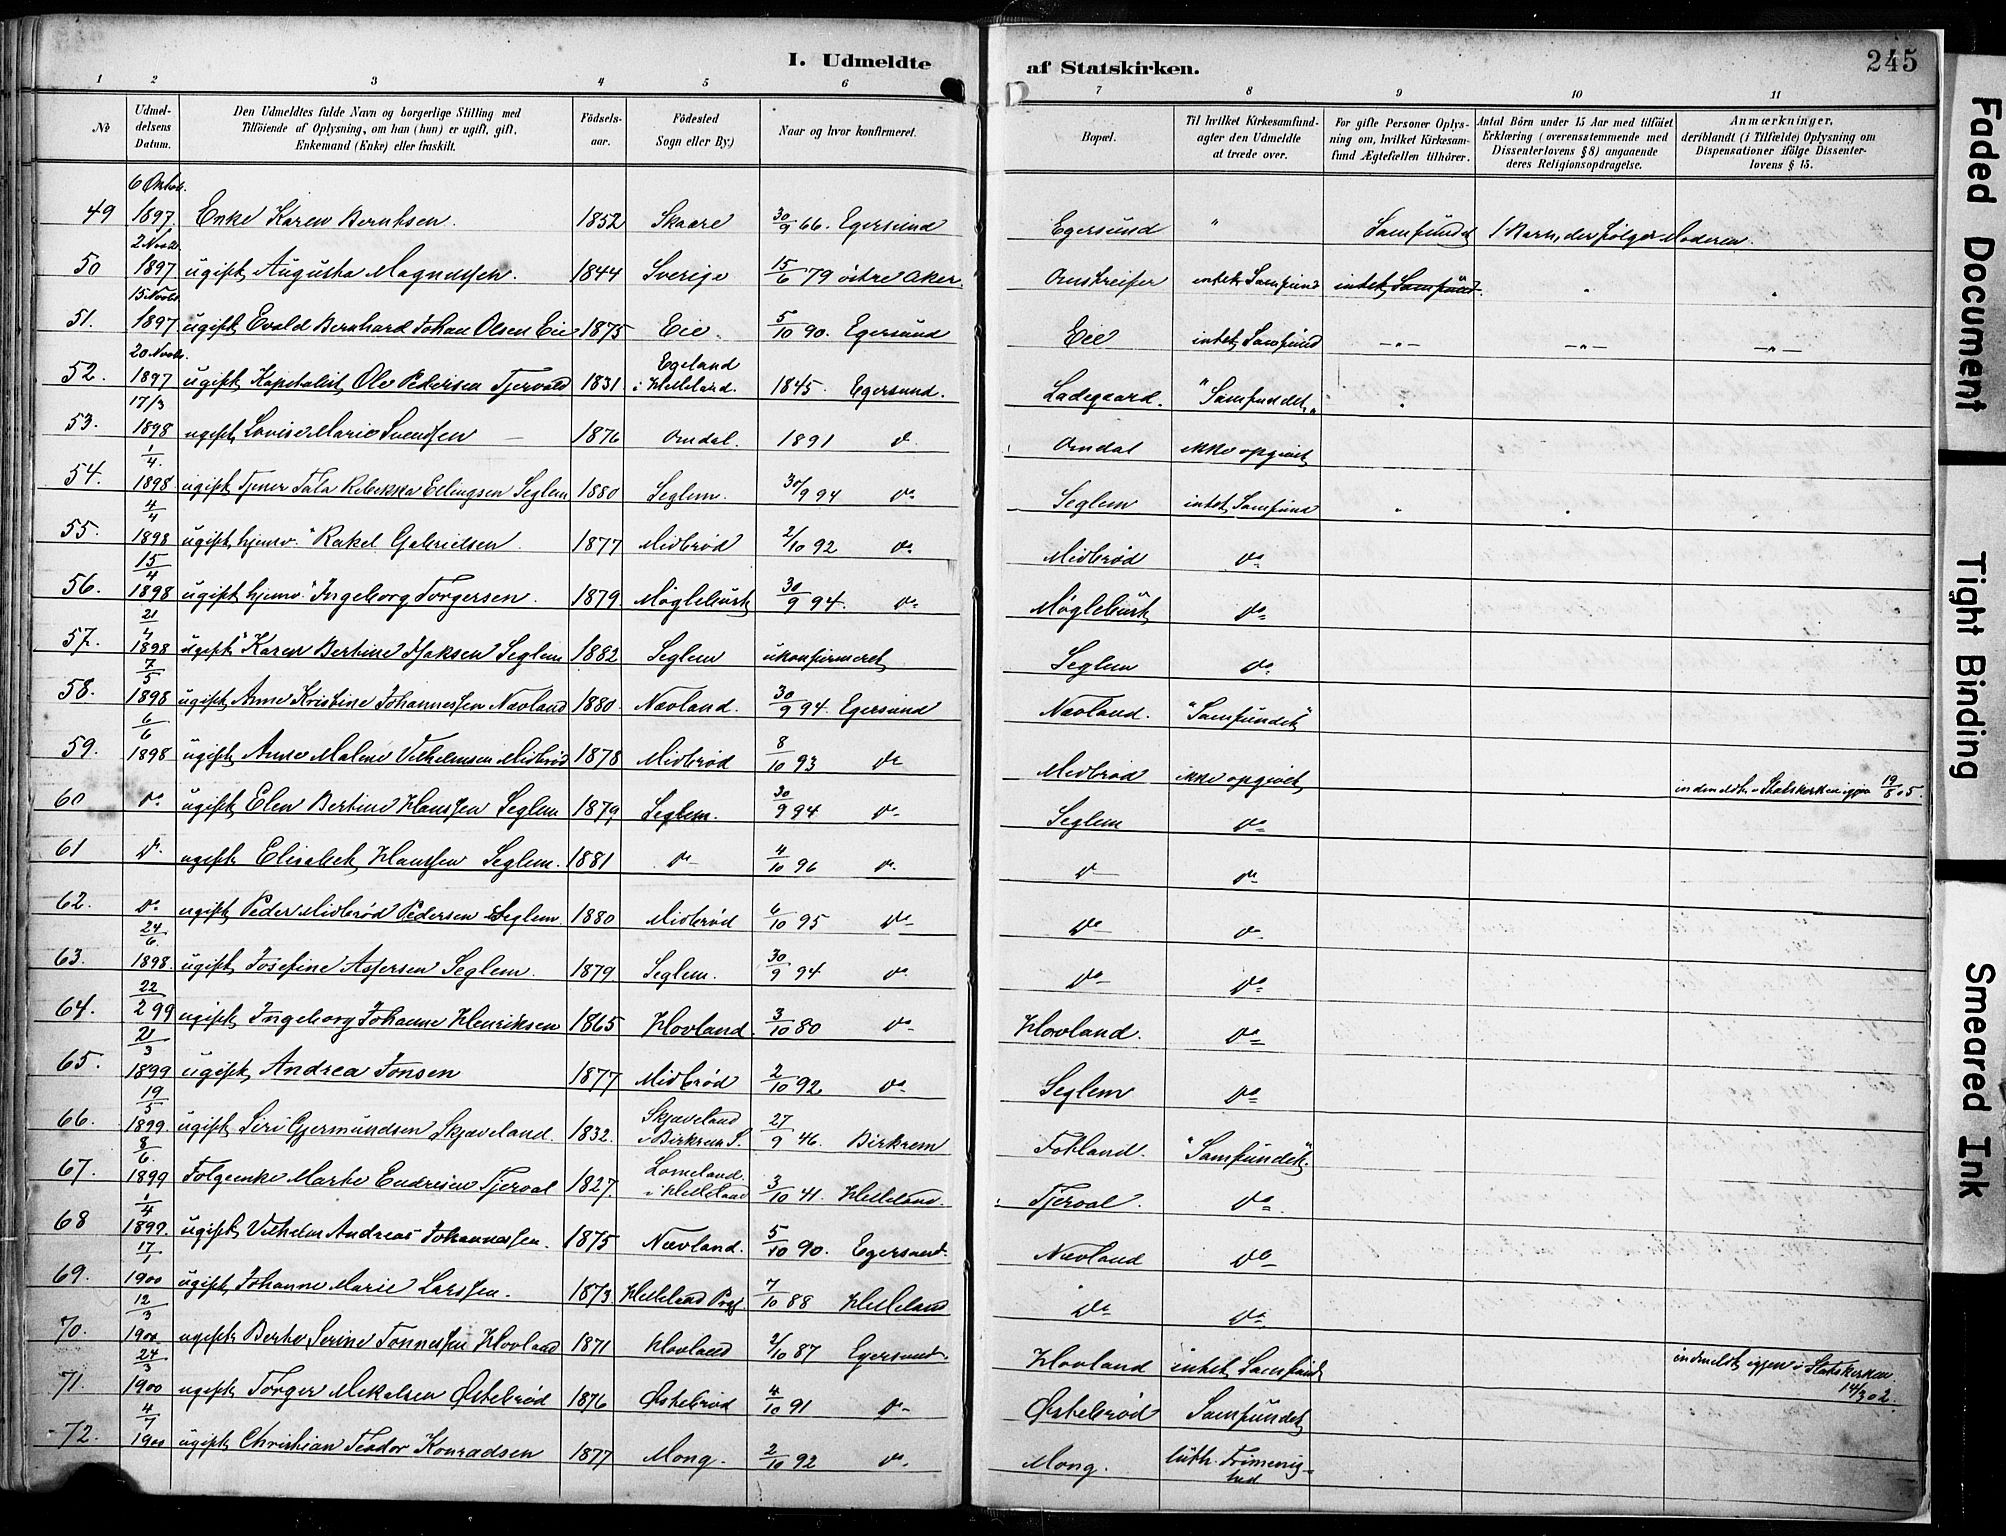 I. Udmeldte af Statskirken.
245
1 2 3 4 5 6 7 8 9 10 11
№
Udmeldelsens Datum.
Den Udmeldtes fulde Navn og borgerlige Stilling med Tilföiende af Oplysning, om han (hun) er ugift, gift, Enkemand (Enke) eller fraskilt.
Födselsaar.
Födested Sogn eller By.)
Naar og hvor konfirmeret.
Bopæl.
Til hvilket Kirkesamfund agter den Udmeldte at træde over.
For gifte Personer Oplysning om, hvilket Kirkesamfund Ægtefællen tilhörer.
Antal Börn under 15 Aar med tilföiet Erklæring (overensstemmende med Dissenterlovens § 8) angaaende deres Religionsopdragelse.
Anmærkninger, deriblandt (i Tilfælde) Oplysning om Dispensationer ifölge Dissenterlovens § 15.
49 6 Oktob. 1897 Enke Karen Berntsen. 1852 Skaare 30/9 66. Egersund Egersund " Samfundet 1 Barn, der følger Moderen
50 2 Novbr. 1897 ugift Augusta Magnussen. 1844 Sverige 15/6 79 östre Aker. Omstreifer intet Samfund intet Samfund " "
51. 15 Novbr. 1897 ugift Evald Bernhard Johan Olsen Eie 1875 Eie. 5/10 90. Egersund Eie intet Samfund -"- -"- -"-
52. 20 Novbr. 1897 ugift Kapitalist Ole Pedersen Tjervald 1831 Egeland i Helleland. 1845. Egersund. Ladegaard. "Samfundet" "
53. 17/3 1898 ugift Lovise Marie Svendsen 1876 Omdal. 1891 do Omdal ikke opgivet
54. 1/4. 1898 ugift Tjener Tala Rebekka Ellingsen Seglem 1880 Seglem. 30/9 94 do Seglem intet Samfund " "
55. 4/4 1898 ugift hjemv. Rakel Gabrielsen 1877 Midbrød 2/10 92 do Midbrød do
56. 15/4 1898 ugift hjemv. Ingeborg Torgersen. 1879. Møglebust 30/9 94. do Møglebust do
57. 21/4 1898 ugift Karen Bertine Isaksen Seglem 1882 Seglem ukonfirmeret Seglem do
58. 7/5 1898 ugift Anne Kristine Johannessen Nævland 1880. Nævland. 30/9 94. Egersund Nævland. "Samfundet"
59. 6/6 1898 ugift Anne Malene Vilhelmsen Midbrød 1878 Midbrød 8/10 93 do Midbrød ikke opgivet indmeldt i Statskirken igjen 19/8 05.
60 do ugift Elen Bertine Hanssen Seglem 1879 Seglem. 30/9 94 do Seglem do
61 do ugift Elisabet Hanssen Seglem. 1881 do 4/10 96 do do do
62. do ugift Peder Midbrød Pedersen Seglem. 1880 Midbrød 6/10 95 do do do
63. 24/6. 1898. ugift Josefine Aspersen Seglem. 1879. Seglem. 30/9 94 do do do
64. 22/2 99 ugift Ingeborg Johanne Henriksen 1865 Hovland. 3/10 80 do Hovland. do
65. 21/3 1899 ugift Andrea Jonsen 1877 Midbrød 2/10 92 do Seglem do
66. 19/5 1899. ugift Siri Gjermundsen Skjæveland. 1832. Skjæveland i Birkrem S. 27/9 46. Birkrem Fotland. "Samfundet".
67. 8/6. 1899 Folgeenke Marte Endresen Tjerval 1827. Lomeland. i Helleland 3/10 41. Helleland. Tjerval. do
68 1/4 1899. ugift Vilhelm Andreas Johannessen. 1875 Nævland. 5/10 90. Egersund. Nævland do
69. 17/1 1900 ugift Johanne Marie Larssen. 1873 Helleland Præst. 7/10 88 Helleland do do
70. 12/3 1900. ugift Berte Serine Tønnessen Hovland 1871 Hovland 2/10 87 Egersund. Hovland intet Samfund indmeldt igjen i Statskirken 14/3 02.
71. 24/3 1900 ugift Torger Mikalsen Østebrød 1876 Østebrød 4/10 91 do Østebrød Samfundet
72. 4/7 1900 ugift Christian Teodor Konradsen 1877 Mong. 2/10 92 do. Mong. luth. Frimenighed
Faded Document
Tight Binding
Smeared Ink